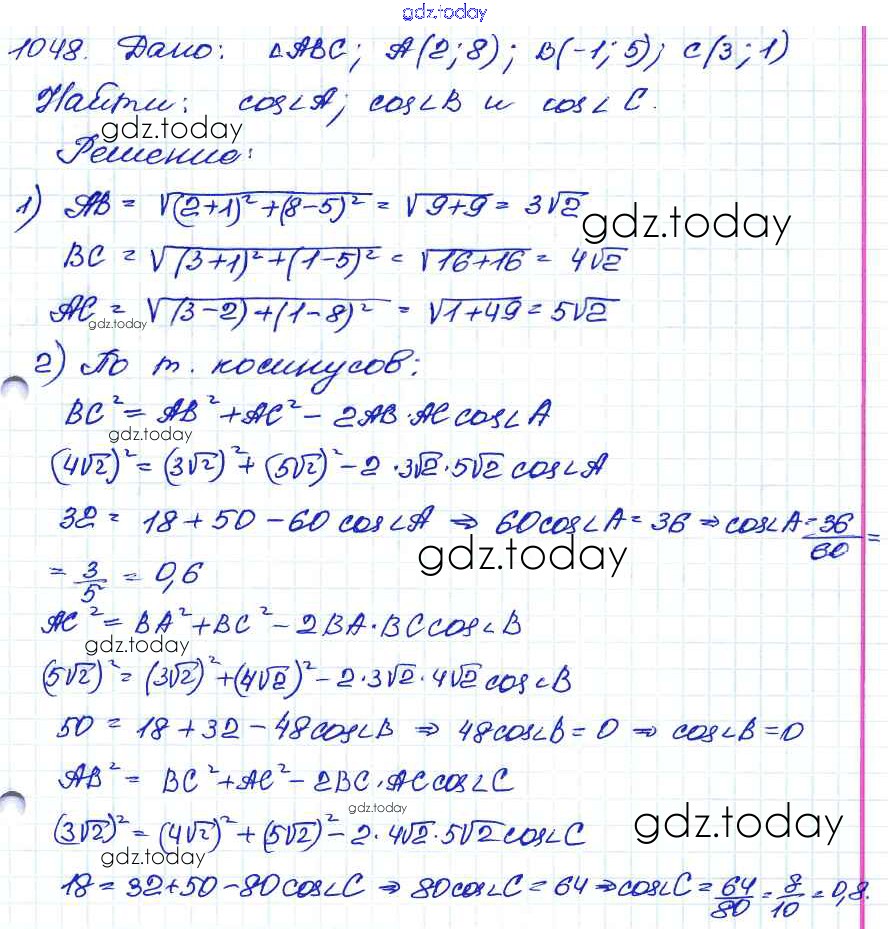 gdz.today
1048. Дано: △ABC; A(2;8); B(-1;5); C(3;1)
Найти: cos∠A; cos∠B и cos∠C.
gdz.today
Решение:
1) AB = √((2+1)²+(8-5)²) = √(9+9) = 3√2
gdz.today
BC = √((3+1)²+(1-5)²) = √(16+16) = 4√2
AC = √((3-2)+(1-8)²) = √(1+49) = 5√2
gdz.today
2) По т. косинусов:
BC² = AB²+AC² - 2AB·AC cos∠A
gdz.today
(4√2)² = (3√2)²+(5√2)² - 2·3√2·5√2 cos∠A
32 = 18+50-60cos∠A ⇒ 60cos∠A = 36 ⇒ cos∠A = 36/60 =
gdz.today
= 3/5 = 0,6
AC² = BA²+BC² - 2BA·BC cos∠B
gdz.today
(5√2)² = (3√2)²+(4√2)² - 2·3√2·4√2 cos∠B
50 = 18+32-48cos∠B ⇒ 48cos∠B = 0 ⇒ cos∠B = 0
AB² = BC²+AC² - 2BC·AC cos∠C
gdz.today
(3√2)² = (4√2)²+(5√2)² - 2·4√2·5√2 cos∠C
gdz.today
gdz.today
18 = 32+50-80cos∠C ⇒ 80cos∠C = 64 ⇒ cos∠C = 64/80 = 8/10 = 0,8.